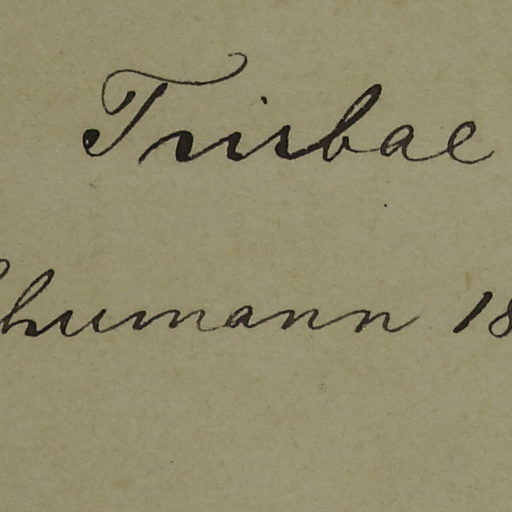 Trisbae
Schumann 18